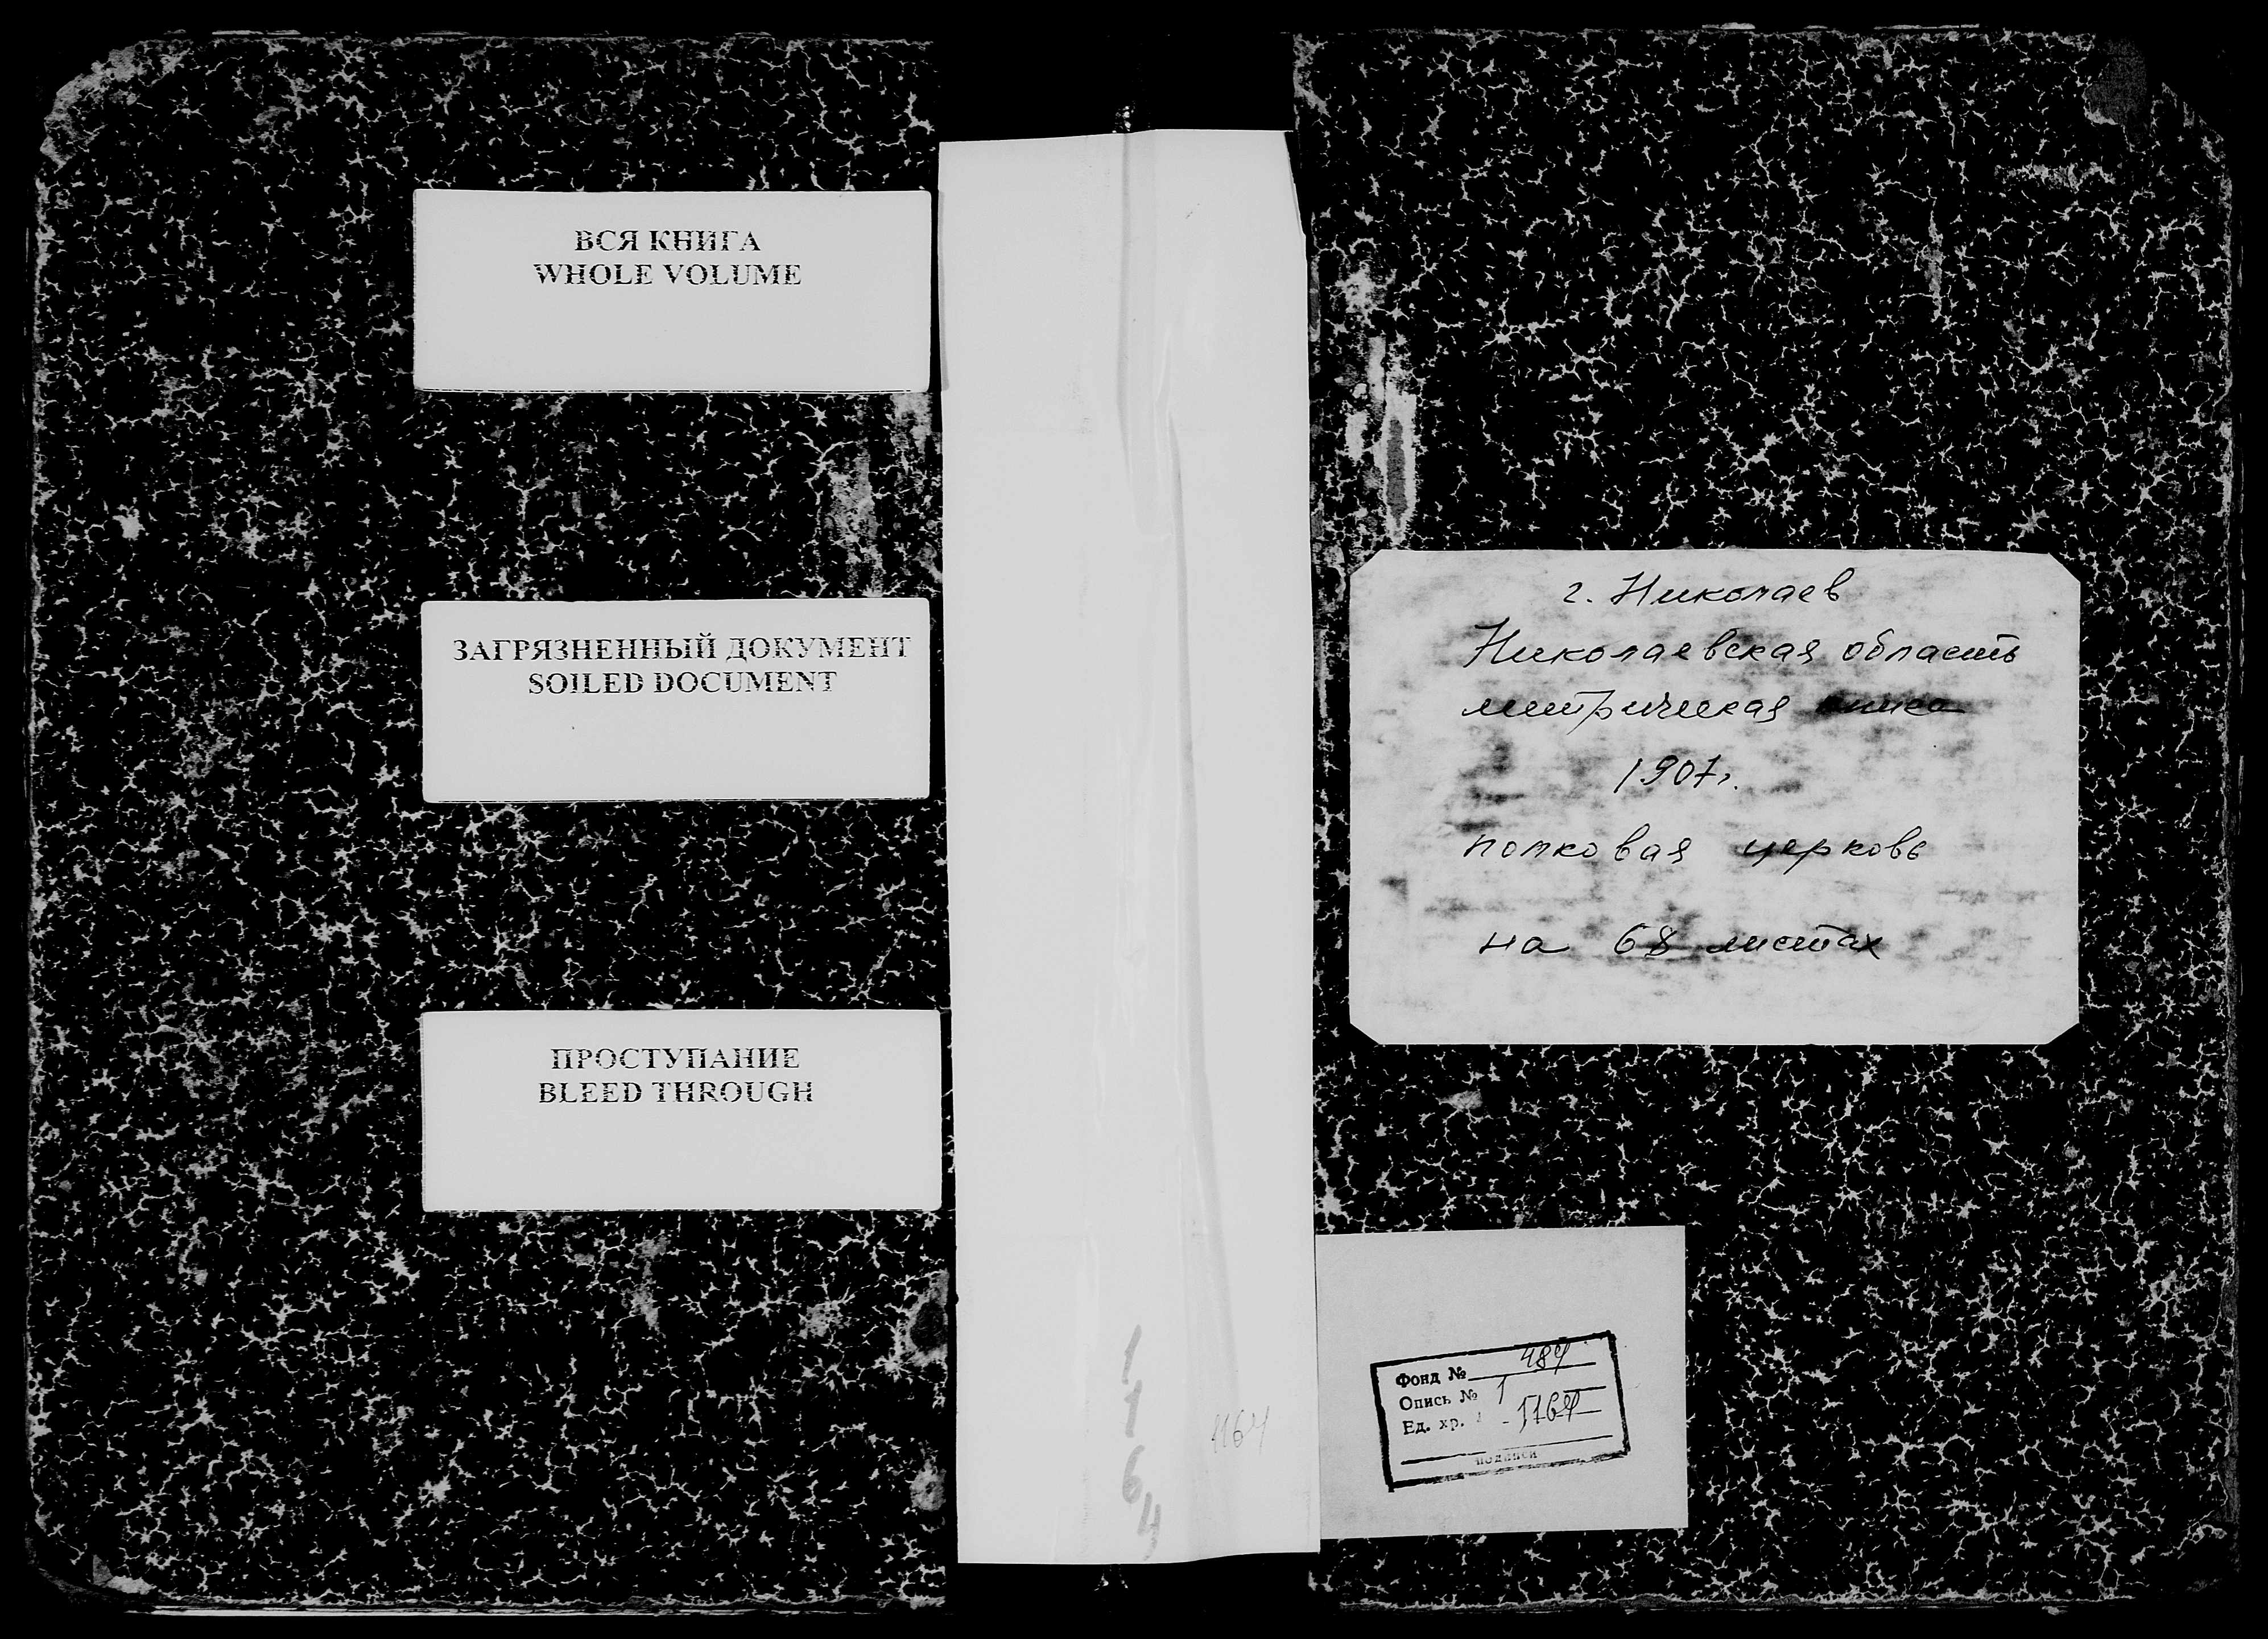 ВСЯ КНИГА
WHOLE VOLUME
ЗАГРЯЗНЕННЫЙ ДОКУМЕНТ
SOILED DOCUMENT
ПРОСТУПАНИЕ
BLEED THROUGH
1
1
6
4
1164
г. Николаев
Николаевская область
метрическая книга
1907г.
полковая церковь
на 68 листах
Фонд № 484
Опись № 1
Ед. хр. 1164
подписи